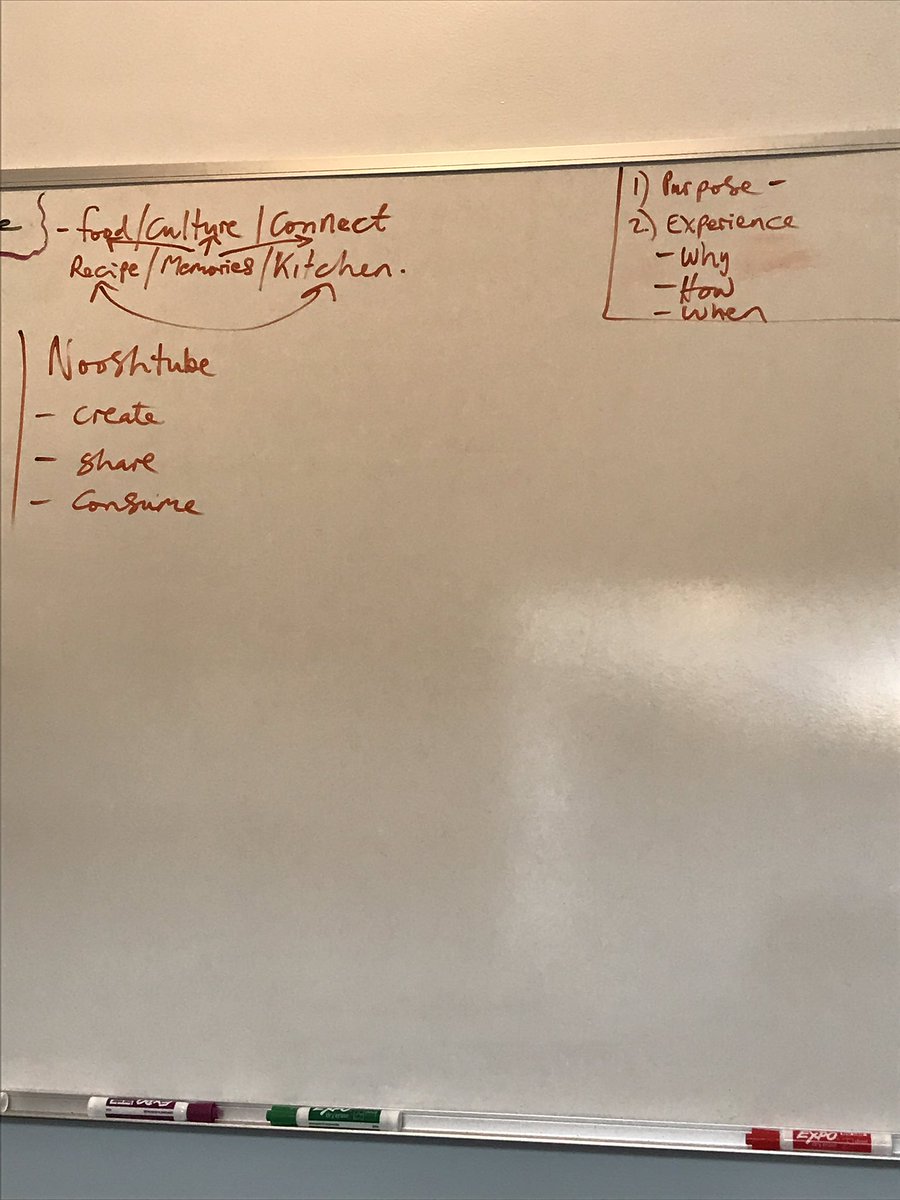 - food/Culture/Connect
Recipe/Memories/Kitchen.
Nooshtube
- create
- share
- Consume
1) Purpose -
2) Experience
- Why
- How
- When
EXPO
EXPO
EXPO